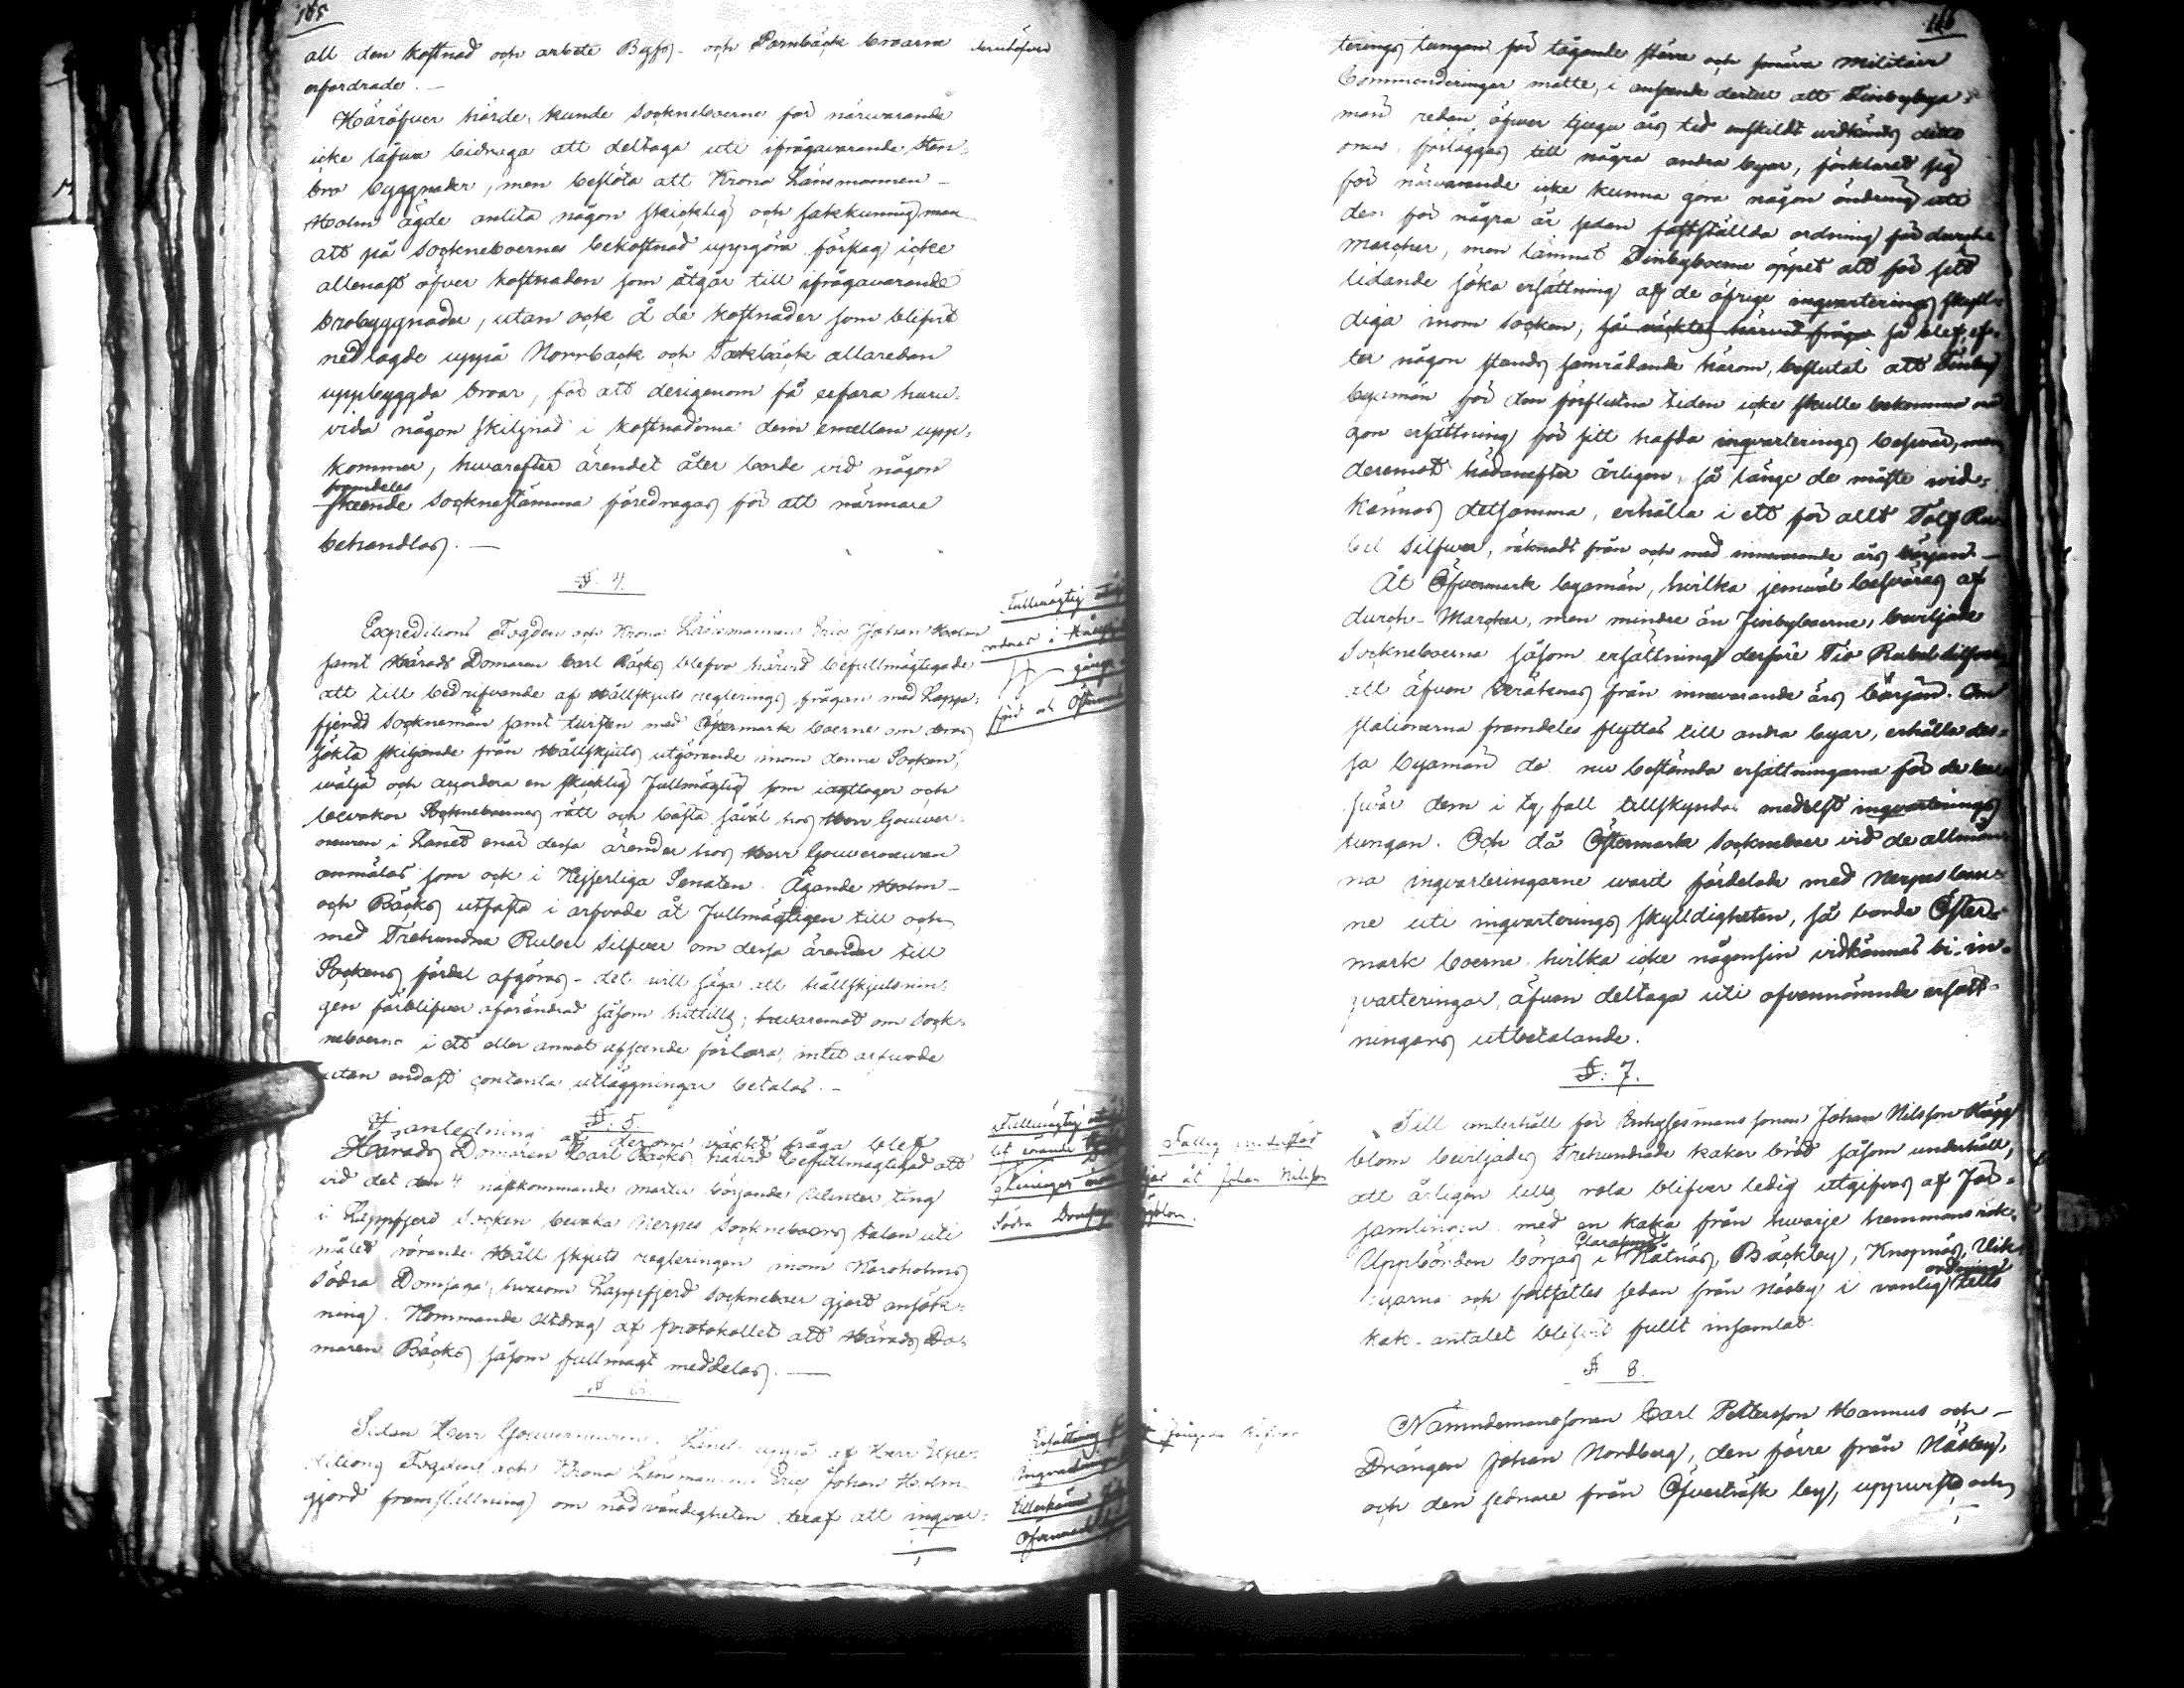 165
all den kostnad och arbete Byfs- och Pornbäck broarna derutöfver
erfordrade. —
Häröfver hörde, kunde Sockneboerne för närwarande
icke låfva bidraga att deltaga uti ifrågavarande sten-
bro byggnader, men beslöto att Krono Länsmannen
Holm ägde anlita någon skicklig och sakkunnig man
att på Sockneboernes bekostnad uppgöra förslag icke
allenast öfver kostnaden som åtgår till ifrågavarande
brobyggnader, utan ock å de kostnader som blifvit
nedlagde uppå Norrback och Tackbäck allaredan
uppbyggda broar, för att derigenom få erfara huru-
vida någon skiljnad i kostnaderna dem emellan upp-
kommer, hwarefter ärendet åter borde vid någon
framdeles
skeende Socknestämma föredragas för att närmare
behandlas. —
§. 4.
Expeditions Fogden och Krono Länsmannen Eric Johan Holm
samt Härads Domaren Carl Bäcks blefvo härvid befullmägtigade
att till bedrifvande af Hållskjuts reglerings frågan med Lapp-
fjerds Socknemän samt tvisten med Östermark boerne om deras
sökta skiljande från Hållskjuts utgörande inom denna Socken,
wälja och accordera en skicklig Fullmägtig som iagttager och
bevakar Sockneboernes rätt och bästa såväl hos Herr Gouver-
neuren i Länet enär dessa ärender hos Herr Gouverneuren
anmälas som ock i Kejserliga Senaten. Ägande Holm
och Bäcks utfästa i arfvode åt Fullmägtigen till och
med Trehundra Rubel Silfver om dessa ärender till
Sockens fördel afgöras - det vill säga att hållskjutsnin-
gen förblifver oförändrad såsom hittills; hwaremot om Sock-
neboerna i ett eller annat afseende förlora, intet arfvode
utan endast contanta utläggningar betalas. —
Fullmägtig
§. 5.
I anledning af derom väckt fråga blef
Härads Domaren Carl Bäcks härvid befullmägtigad att
vid det den 4 nästkommande Martii börjande Winter ting
i Lappfjerd Socken bevaka Nerpes Sockneboers talan uti
målet rörande Håll skjuts regleringen inom Korsholms
Södra Domsaga, hwarom Lappfjerd Sockneboer gjort ansök-
ning. Kommande Utdrag af protokollet att Härads Do-
maren Bäcks såsom fullmagt meddelas. —
Fullmägtig
Södra
§ 6.
Sedan Herr Gouverneuren i Länet uppå af Herr Expe-
ditions Fogden och Krono Länsmannen Eric Johan Holm
gjord framställning om nödvändigheten deraf att inqvar-
Ersättning
Inqvartering
tillerkänd
166
terings tungan för tågande större och smärre Militaire
Commenderingar måtte, i anseende dertill att Finbybya-
män redan öfwer tjugu års tid enskildt widkänts detta
onus, förläggas till några andra byar, förklarat sig
för närvarande icke kunna göra någon ändring uti
den för några år sedan fastställda ordning för durche
marcher, men lämnat Finbyboerne öppet att för sitt
lidande söka ersättning af de öfrige inqvarterings skyl-
diga inom socken; så väcktes härvid fråga så blef, ef-
ter någon stunds samrådande härom, beslutat att Finby
byamän för den förflutna tiden icke skulle bekomma nå-
gon ersättning för sitt hafda inqvarterings besvär, men
deremot hädanefter årligen, så länge de måste wid-
kännas detsamma, erhålla i ett för allt Tolf Ru-
bel Silfwer, räknadt från och med innevarande års början. —
Åt Öfvermark byamän, hvilka jemväl besväras af
durch-Marcher, men mindre än Finbyboerne, beviljade
Sockneboerna såsom ersättning derföre Tio Rubel Silfver
att äfven beräknas från innevarande års början. Om
stationerna framdeles flyttas till andra byar, erhålla des-
sa byamän de nu bestämda ersättningarna för de be-
svär dem i ty fall tillskyndas medelst inqvarterings
tungan. Och då Östermark Socknebor vid de allmän-
na inqvarteringarne warit fördelade med Nerpesboer-
ne uti inqvarterings skyldigheten, så borde Öster-
mark boerne hvilka icke någonsin vidkännas bi-in-
qvarteringar, äfven deltaga uti ofvannämnde ersätt-
ningars utbetalande.
§. 7.
Till underhåll för Enhyssesmans sonen Johan Nilsson Hägg-
blom beviljades Trehundrade kakor bröd såsom underhåll,
att årligen tills rota blifver ledig utgifvas af För-
samlingen med en kaka från hwarje hemmans rök.
Uppbörden börjas i Nätnäs, Bäckby, Knapnäs, Vik-
byarna och fortsättes sedan från Näsby i vanlig ordning tills
kak-antalet blifvit fullt insamlat.
åt Johan Nilsson
§ 8.
Nämndemansonen Carl Pettersson Hannus och
Drängen Johan Nordberg, den förre från Näsby,
och den sednare från Öfverträsk by, uppwiste och